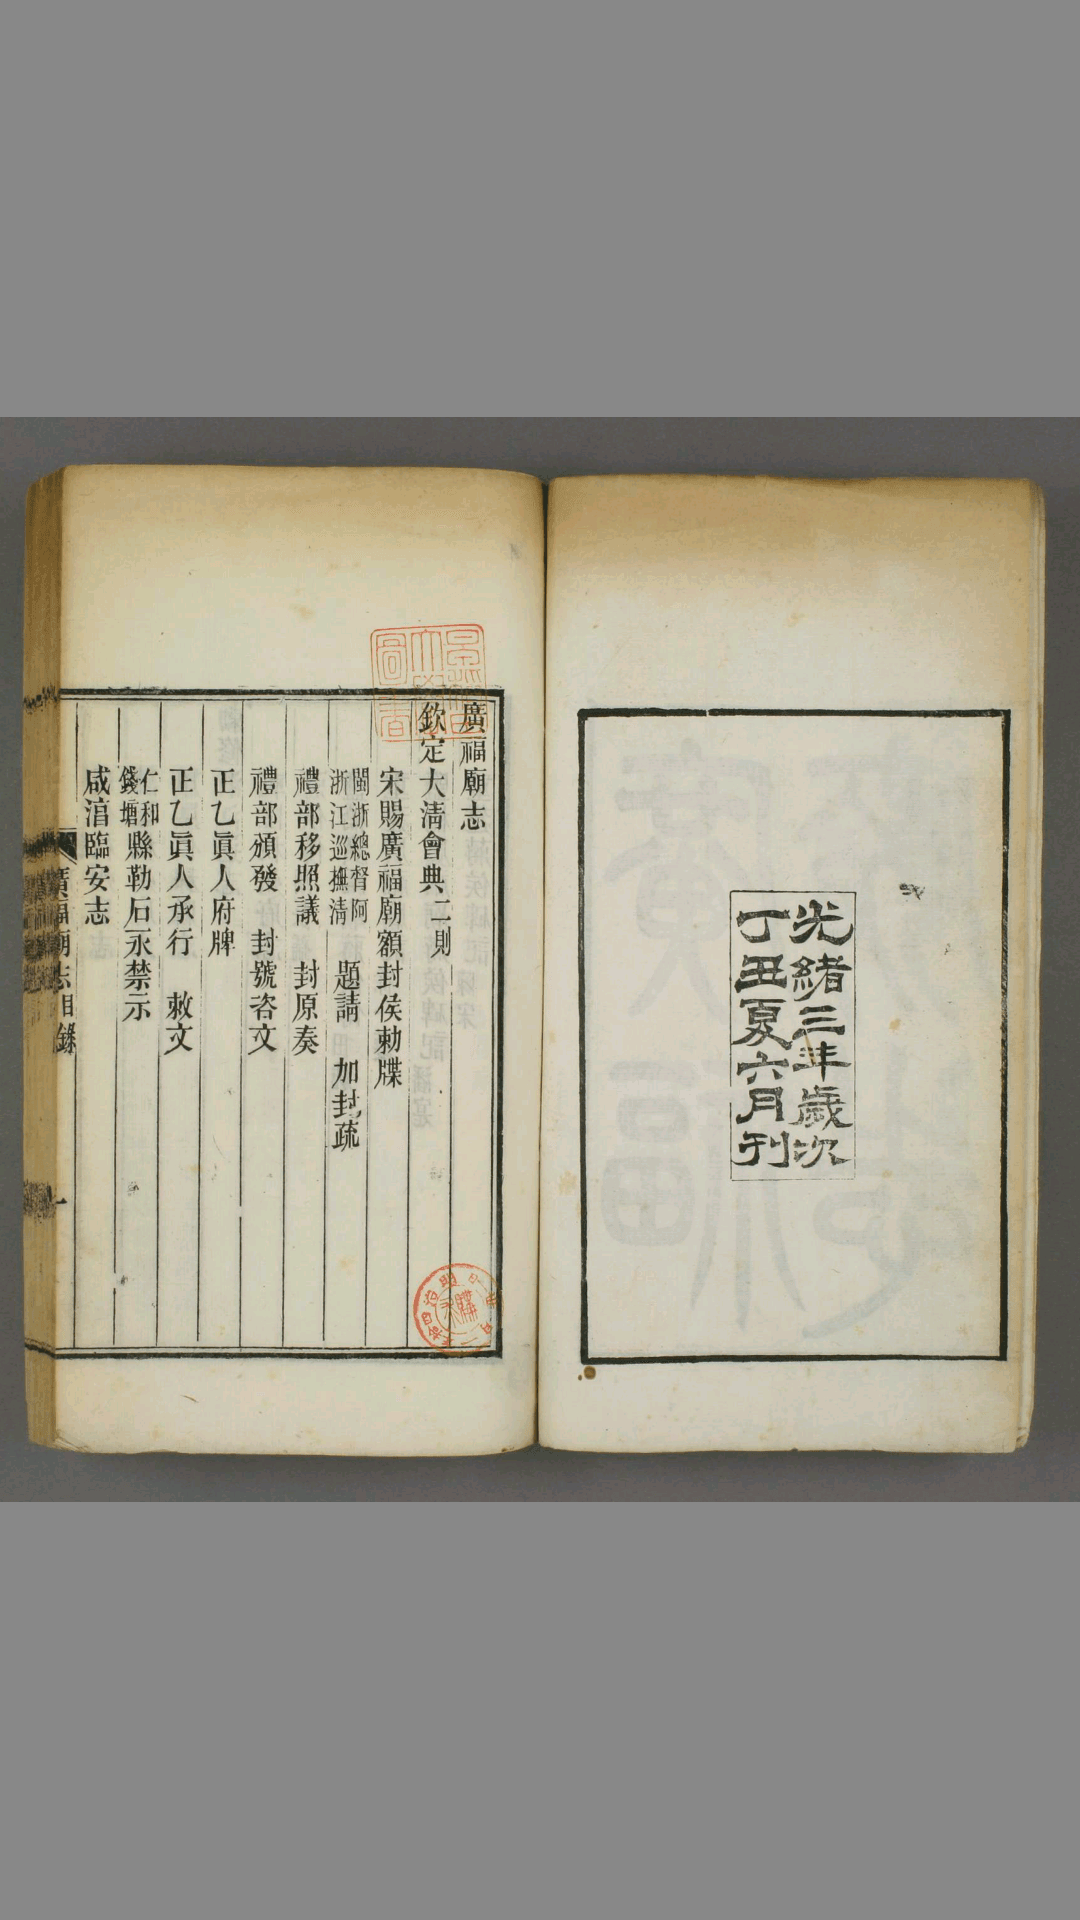 光緒三年歲次
丁丑夏六月刊
廣福廟志
欽定大淸會典二則
宋賜廣福廟額封侯勅牒
閩浙總督阿
浙江巡撫淸
題請 加封疏
禮部移照議 封原奏
禮部頒發 封號咨文
正乙眞人府牌
正乙眞人承行 敕文
仁和
錢塘
縣勒石永禁示
咸淳臨安志
廣福廟志目錄 一